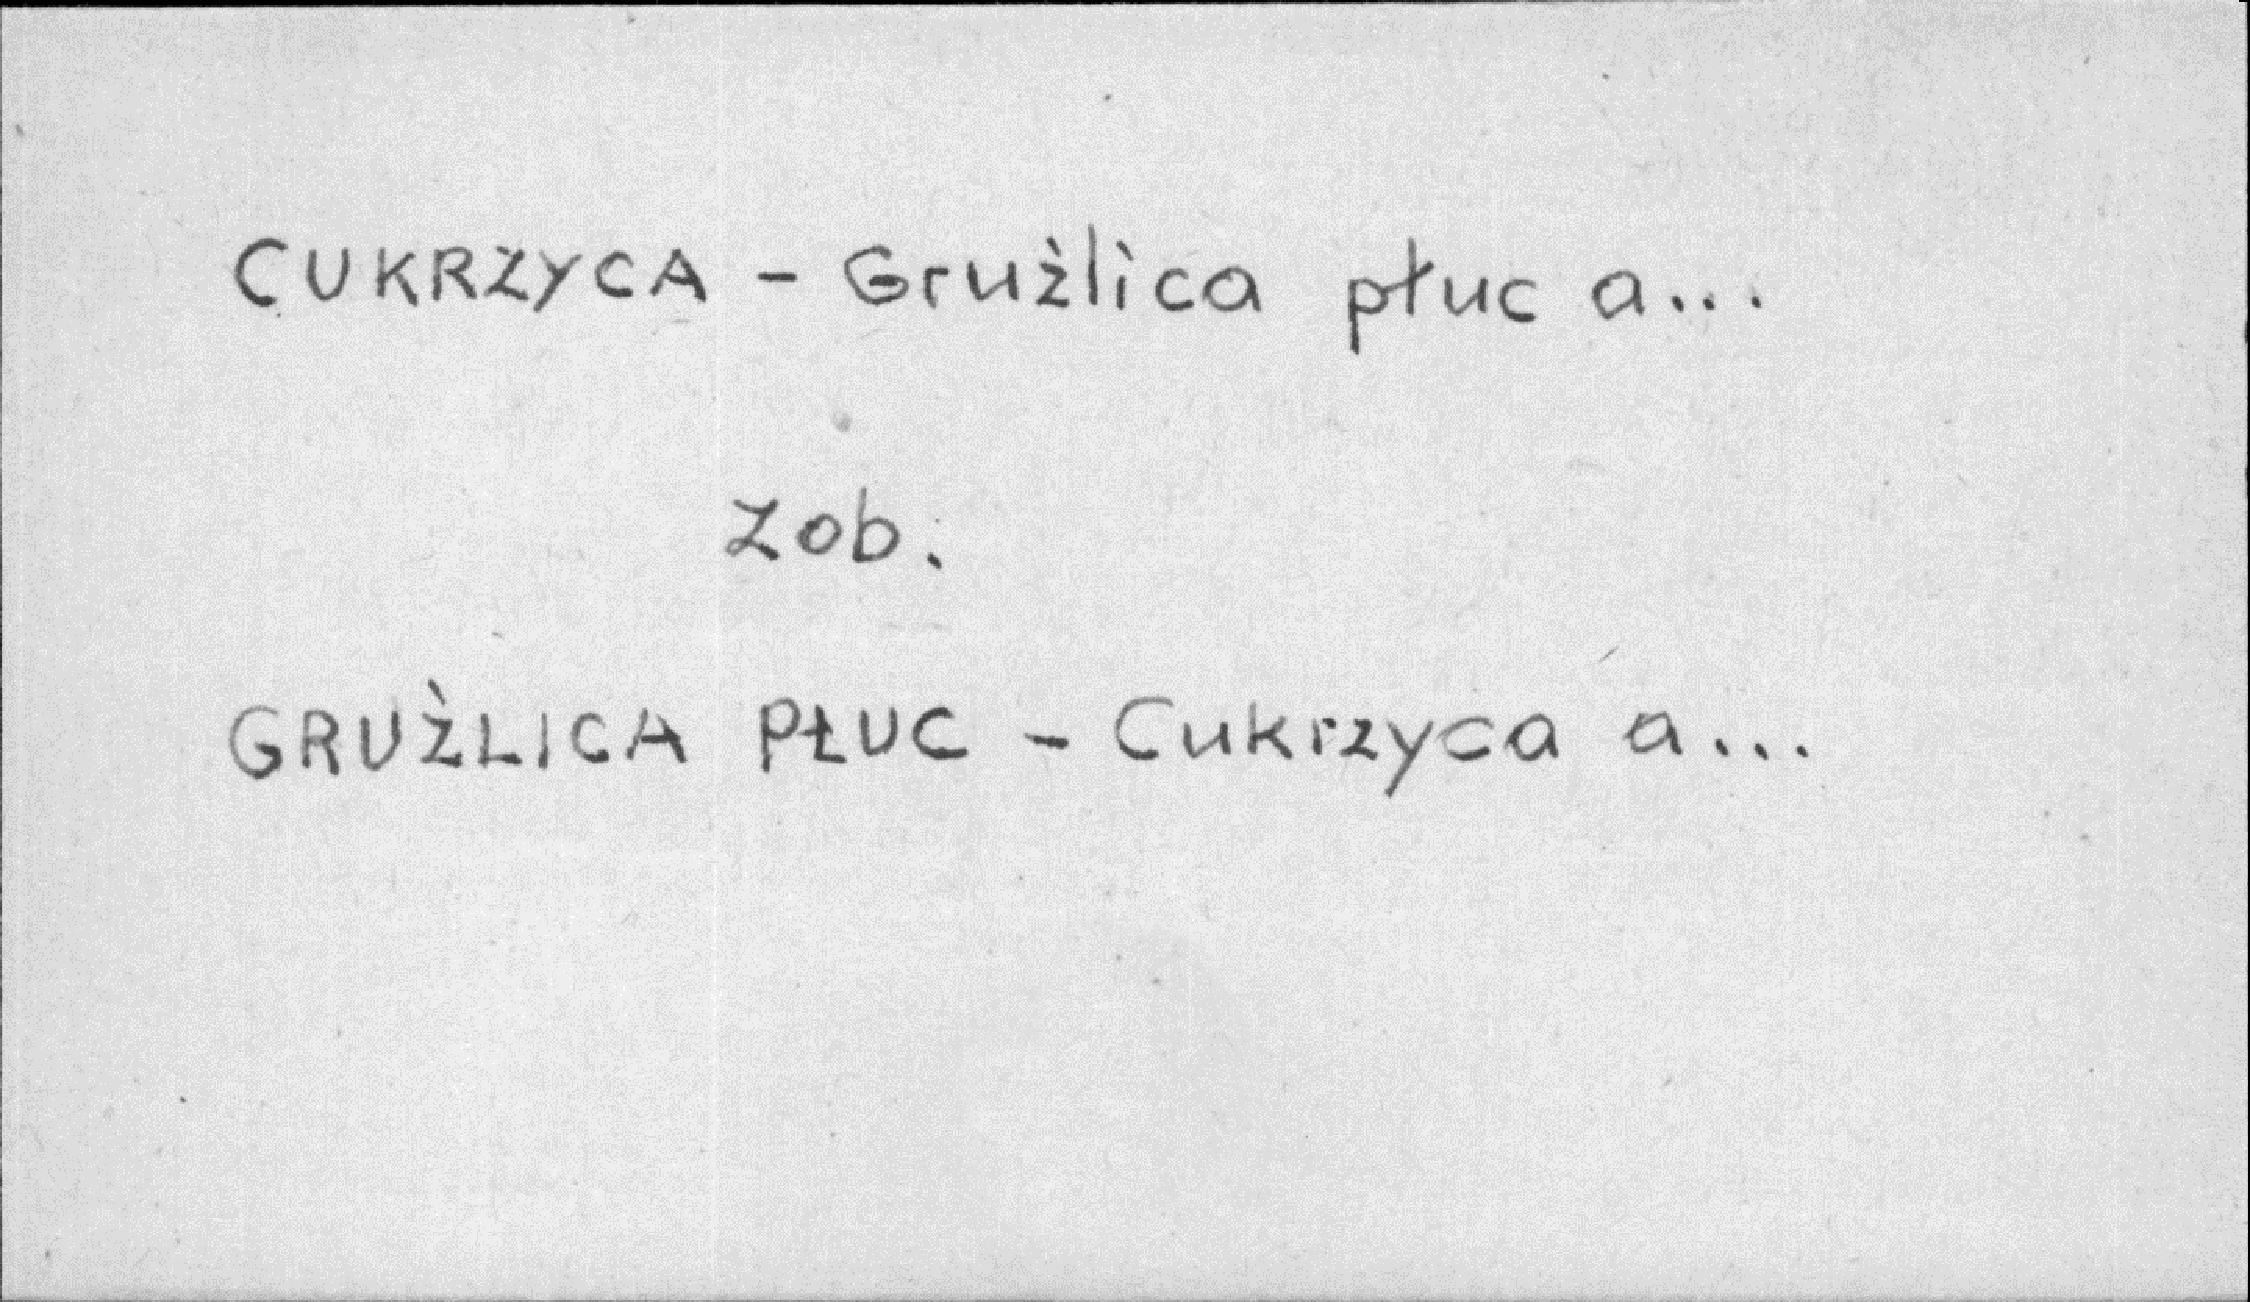 CUKRZYCA - Gruźlica płuc a...
Zob.
GRUŹLICA PŁUC - Cukrzyca a...